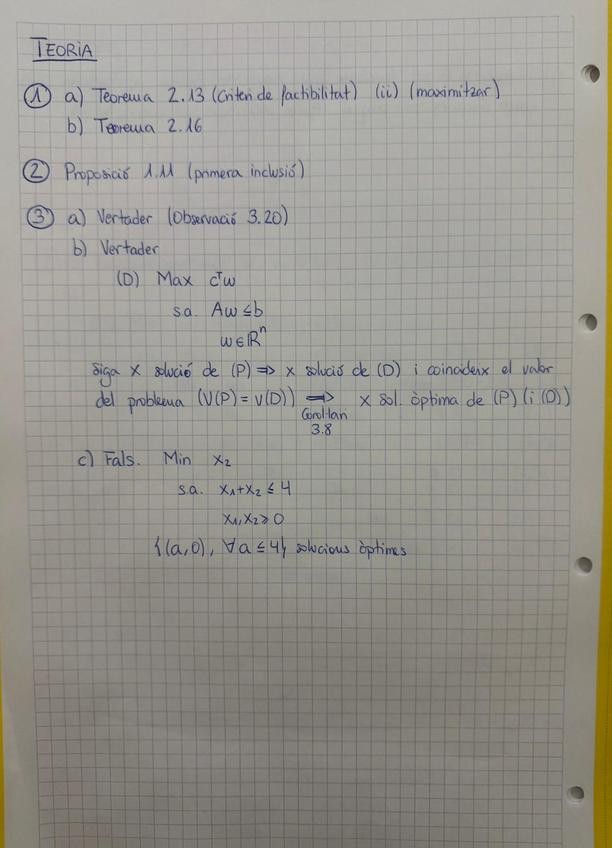 TEORIA
① a) Teorema 2.13 (Criteri de factibilitat) (ii) (maximitzar)
b) Teorema 2.16
② Proposició 1.11 (primera inclusió)
③ a) Vertader (Observació 3.20)
b) Vertader
(D) Max cᵀw
s.a. Aw ≤ b
w ∈ ℝⁿ
Siga x solució de (P) ⇒ x solució de (D) i coincideix el valor
del problema (V(P) = V(D)) ⇒ x sol. òptima de (P) (i (D))
Corol·lari
3.8
c) Fals. Min x₂
s.a. x₁+x₂ ≤ 4
x₁,x₂ ≥ 0
{(a,0), ∀a ≤ 4} solucions òptimes